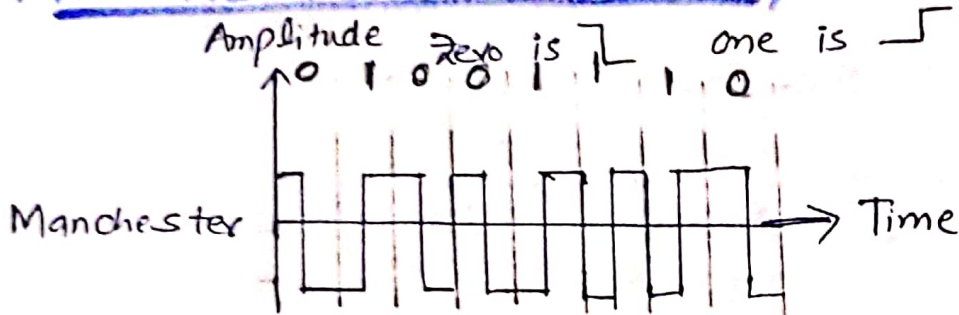 Amplitude Zero is one is
0 1 0 0 1 1 1 0
Manchester
Time